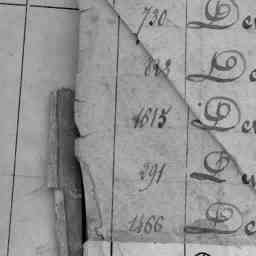 730 De
623 De
1615 De
291
1466 De